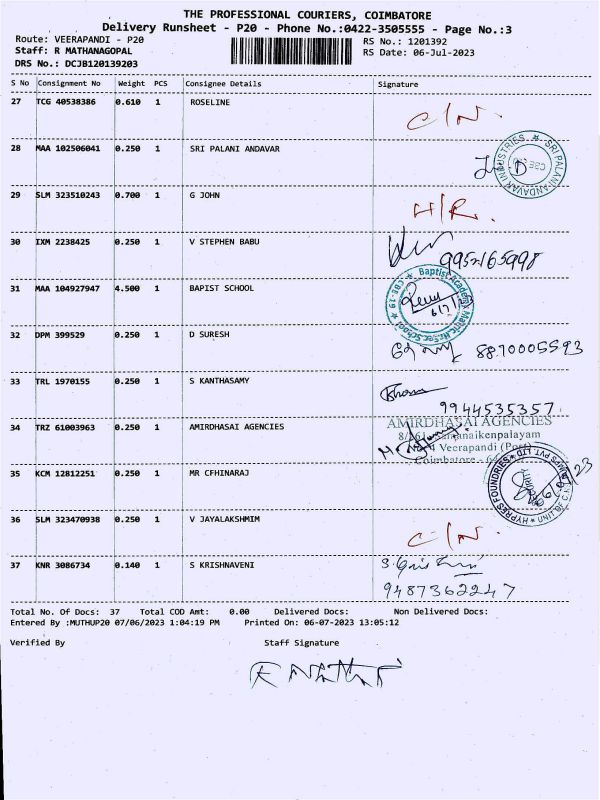 THE PROFESSIONAL COURIERS, COIMBATORE
Delivery Runsheet - P20 - Phone No.:0422-3505555 - Page No.:3
Route: VEERAPANDI - P20 RS No.: 1201392
Staff: R MATHANAGOPAL RS Date: 06-Jul-2023
DRS No.: DCJB120139203
S No Consignment No Weight PCS Consignee Details Signature
27 TCG 40538386 0.610 1 ROSELINE C/N.
28 MAA 102506041 0.250 1 SRI PALANI ANDAVAR
SRI PALANI ANDAVAR INDUSTRIES
29 SLM 323510243 0.700 1 G JOHN H/R.
30 IXM 2238425 0.250 1 V STEPHEN BABU
31 MAA 104927947 4.500 1 BAPIST SCHOOL
Baptist Academy Matric.Hr.Sec.School CBE-19
32 DPM 399529 0.250 1 D SURESH 8870005593
33 TRL 1970155 0.250 1 S KANTHASAMY
9944535357
34 TRZ 61003963 0.250 1 AMIRDHASAI AGENCIES
AMIRDHASAI AGENCIES
Veerapandi (Post)
Coimbatore
35 KCM 12812251 0.250 1 MR CFHINARAJ
HYPRES FOUNDRIES PVT LTD
36 SLM 323470938 0.250 1 V JAYALAKSHMIM C/N.
37 KNR 3086734 0.140 1 S KRISHNAVENI
9487362247
Total No. Of Docs: 37 Total COD Amt: 0.00 Delivered Docs: Non Delivered Docs:
Entered By :MUTHUP20 07/06/2023 1:04:19 PM Printed On: 06-07-2023 13:05:12
Verified By Staff Signature